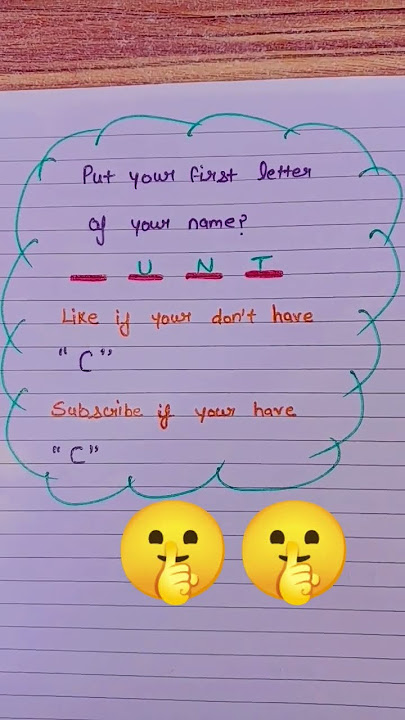 Put your first letter
of your name?
_ U N T
Like if your don't have
"C"
Subscribe if your have
"C"